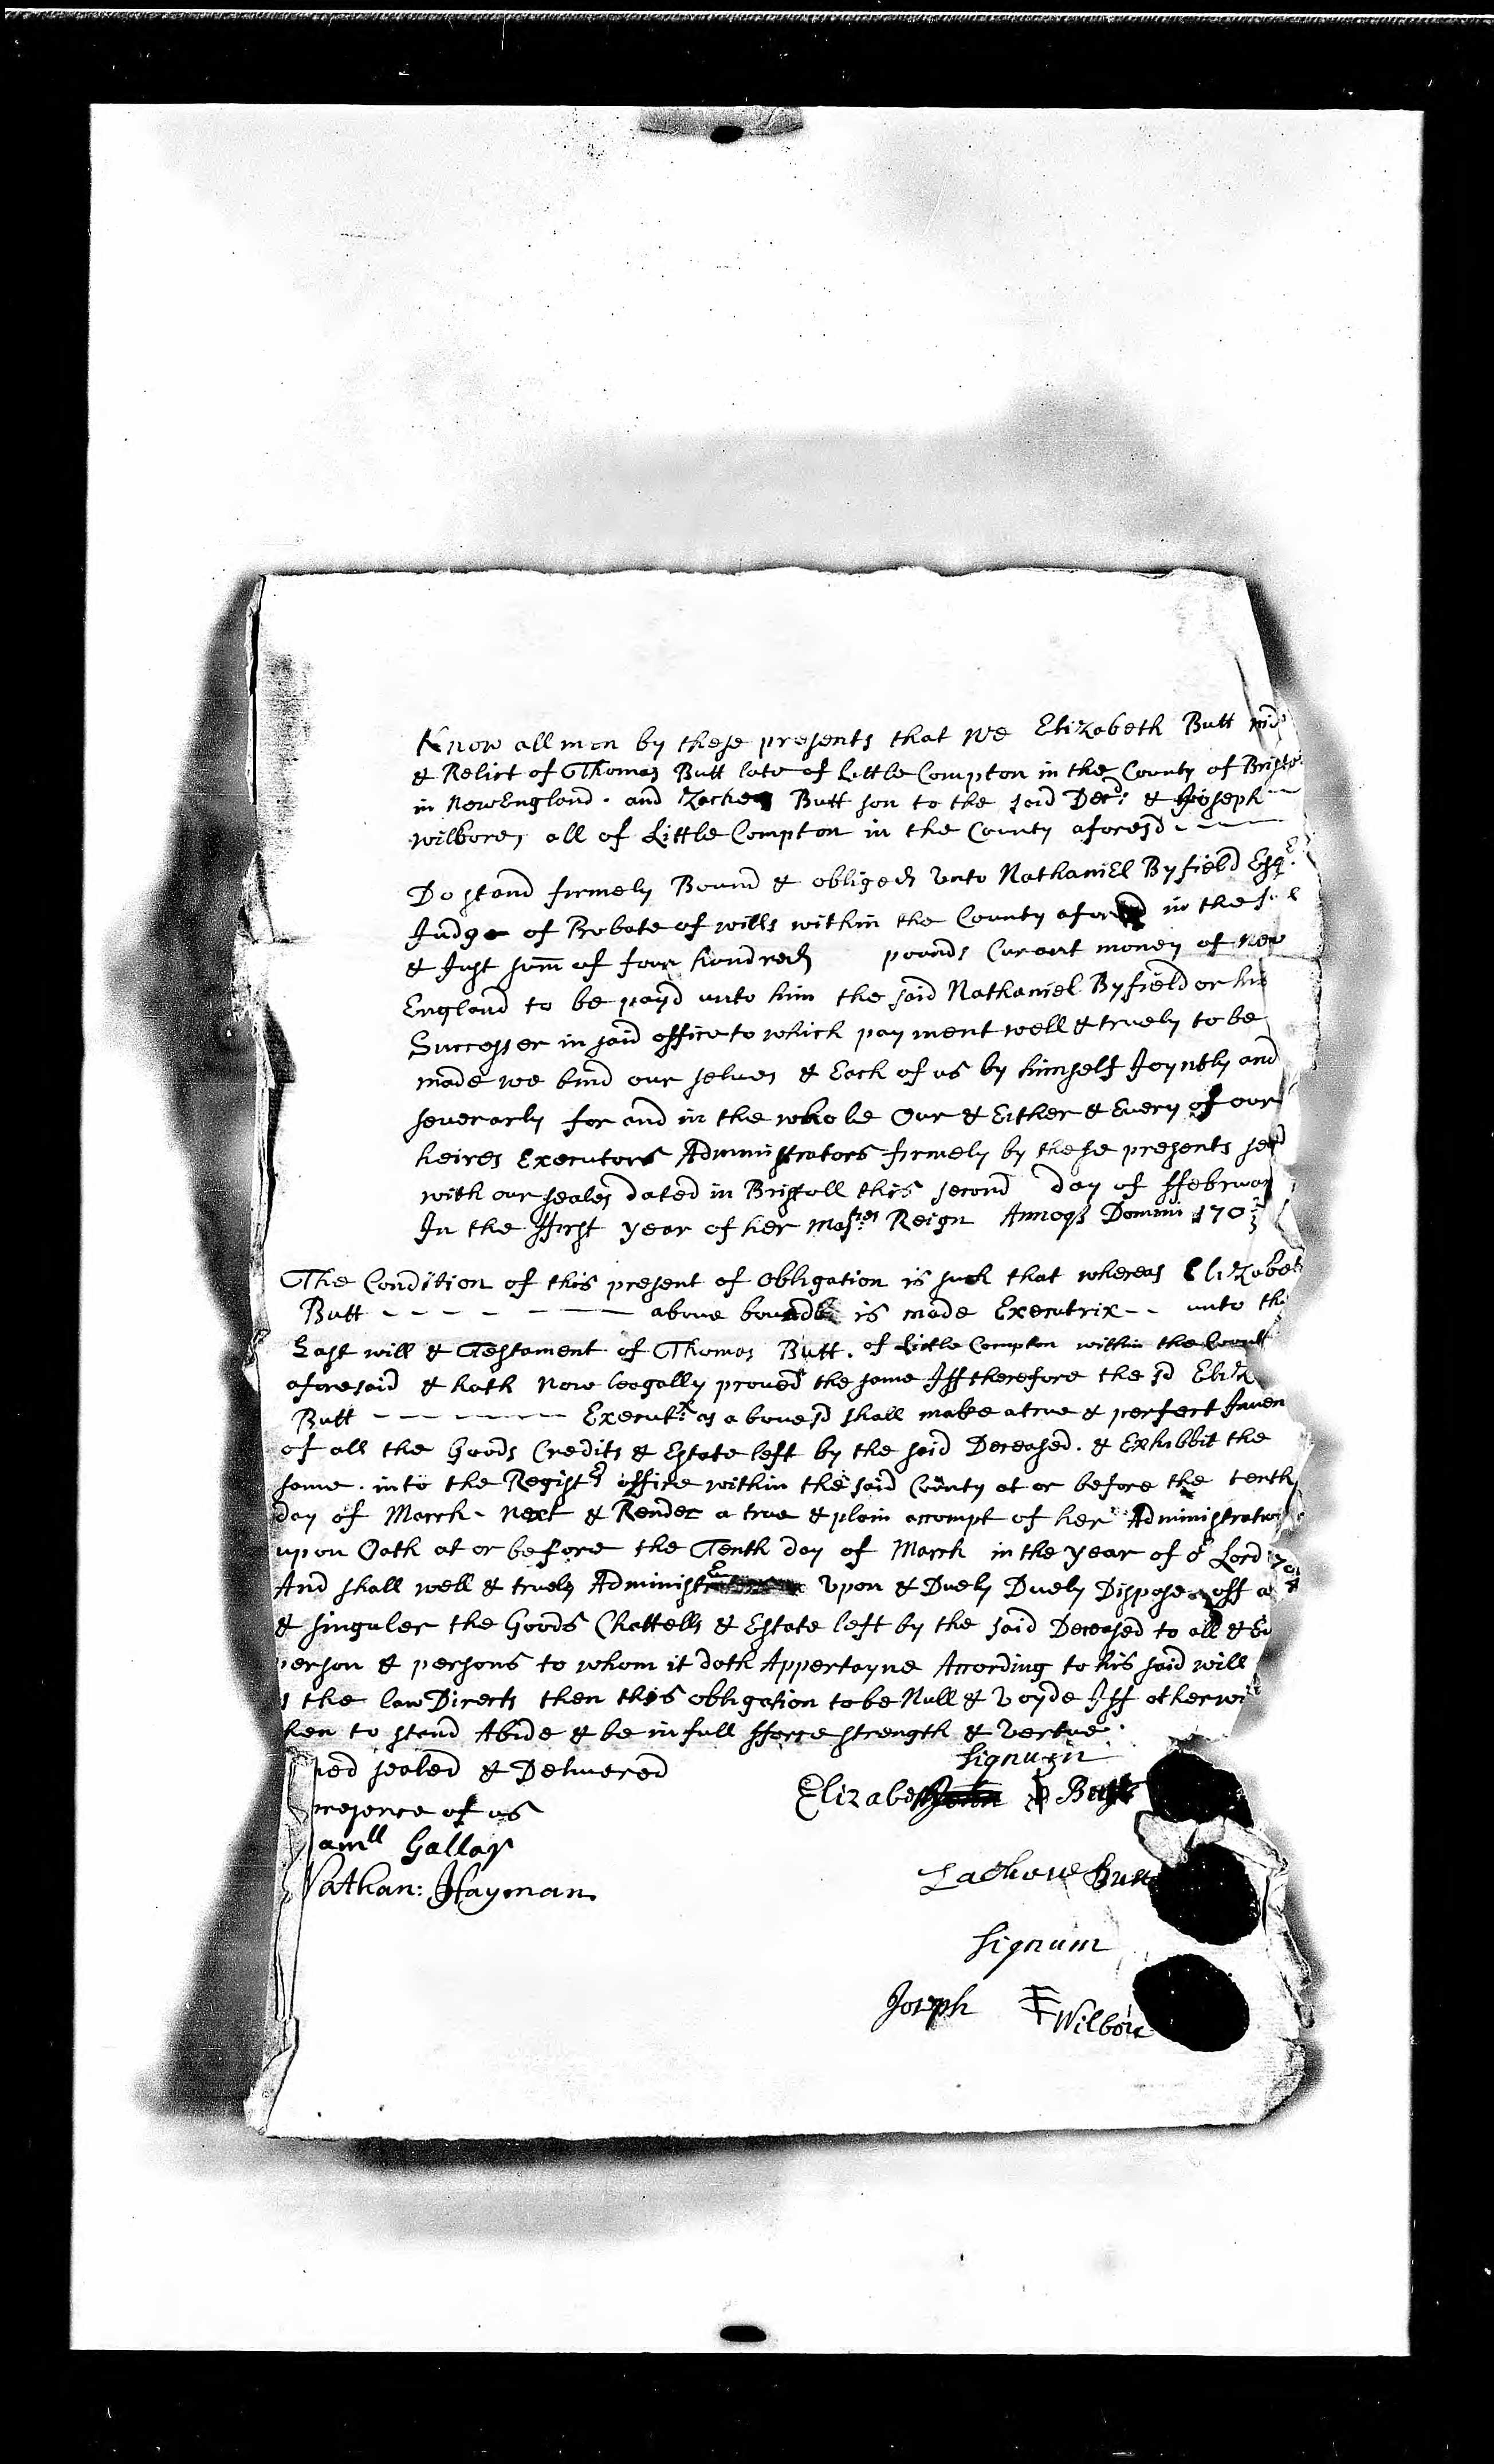 Know all men by these presents that we Elizabeth Butt wid
& Relict of Thomas Butt late of Little Compton in the County of Bristo
in New England. and Zacheus Butt son to the said Decd: & Joseph
wilbore, all of Little Compton in the County aforesd
Do stand firmely Bound & obliged unto Nathaniel Byfield Esqr.
Judge of Probate of wills within the County afore in the
& Just sum of four hundred pounds Curant money of New
England to be payd unto him the said Nathaniel Byfield or his
Successer in said office to which payment well & truely to be
made we bind our selves & Each of us by himself Joyntly and
severarly for and in the whole Our & Either & Every of our
heires Executors Administrators firmely by these presents seld
with our seales dated in Bristoll this second day of ffebruar
In the ffirst year of her Majties Reign Annoqs Domini 170 2/3
The Condition of this present of obligation is such that whereas Elizabet
Butt - - - - - - above bounde is made Executrix - - unto the
Last will & Testament of Thomas Butt. of Little Compton within the Count
aforesaid & hath Now leagally proved the same Iff therefore the sd Eliz
Butt - - - - - - Executrx as abovesd shall make a true & perfect Inven
of all the Goods Credits & Estate left by the said Deceased. & Exhibbit the
same. into the Registrs office within the said County at or before the tenth
day of March - Next & Render a true & plain accompt of her Administratio
upon Oath at or before the Tenth day of March in the year of or Lord 170
And shall well & truely Administer Upon & Duely Duely Dispose off a
& singuler the Goods Chattells & Estate left by the said Deceased to all & Ev
person & persons to whom it doth Appertayne According to his said will
s the law Directs then this obligation to be Null & Voyde Iff otherwi
hen to stand Abide & be in full fforce strength & Vertue.
ned sealed & Delivered
presence of us
amll Gallop
Nathan: Hayman
Signum
Elizabeth Butt
Zacheus Butt
Signum
Joseph Wilbore